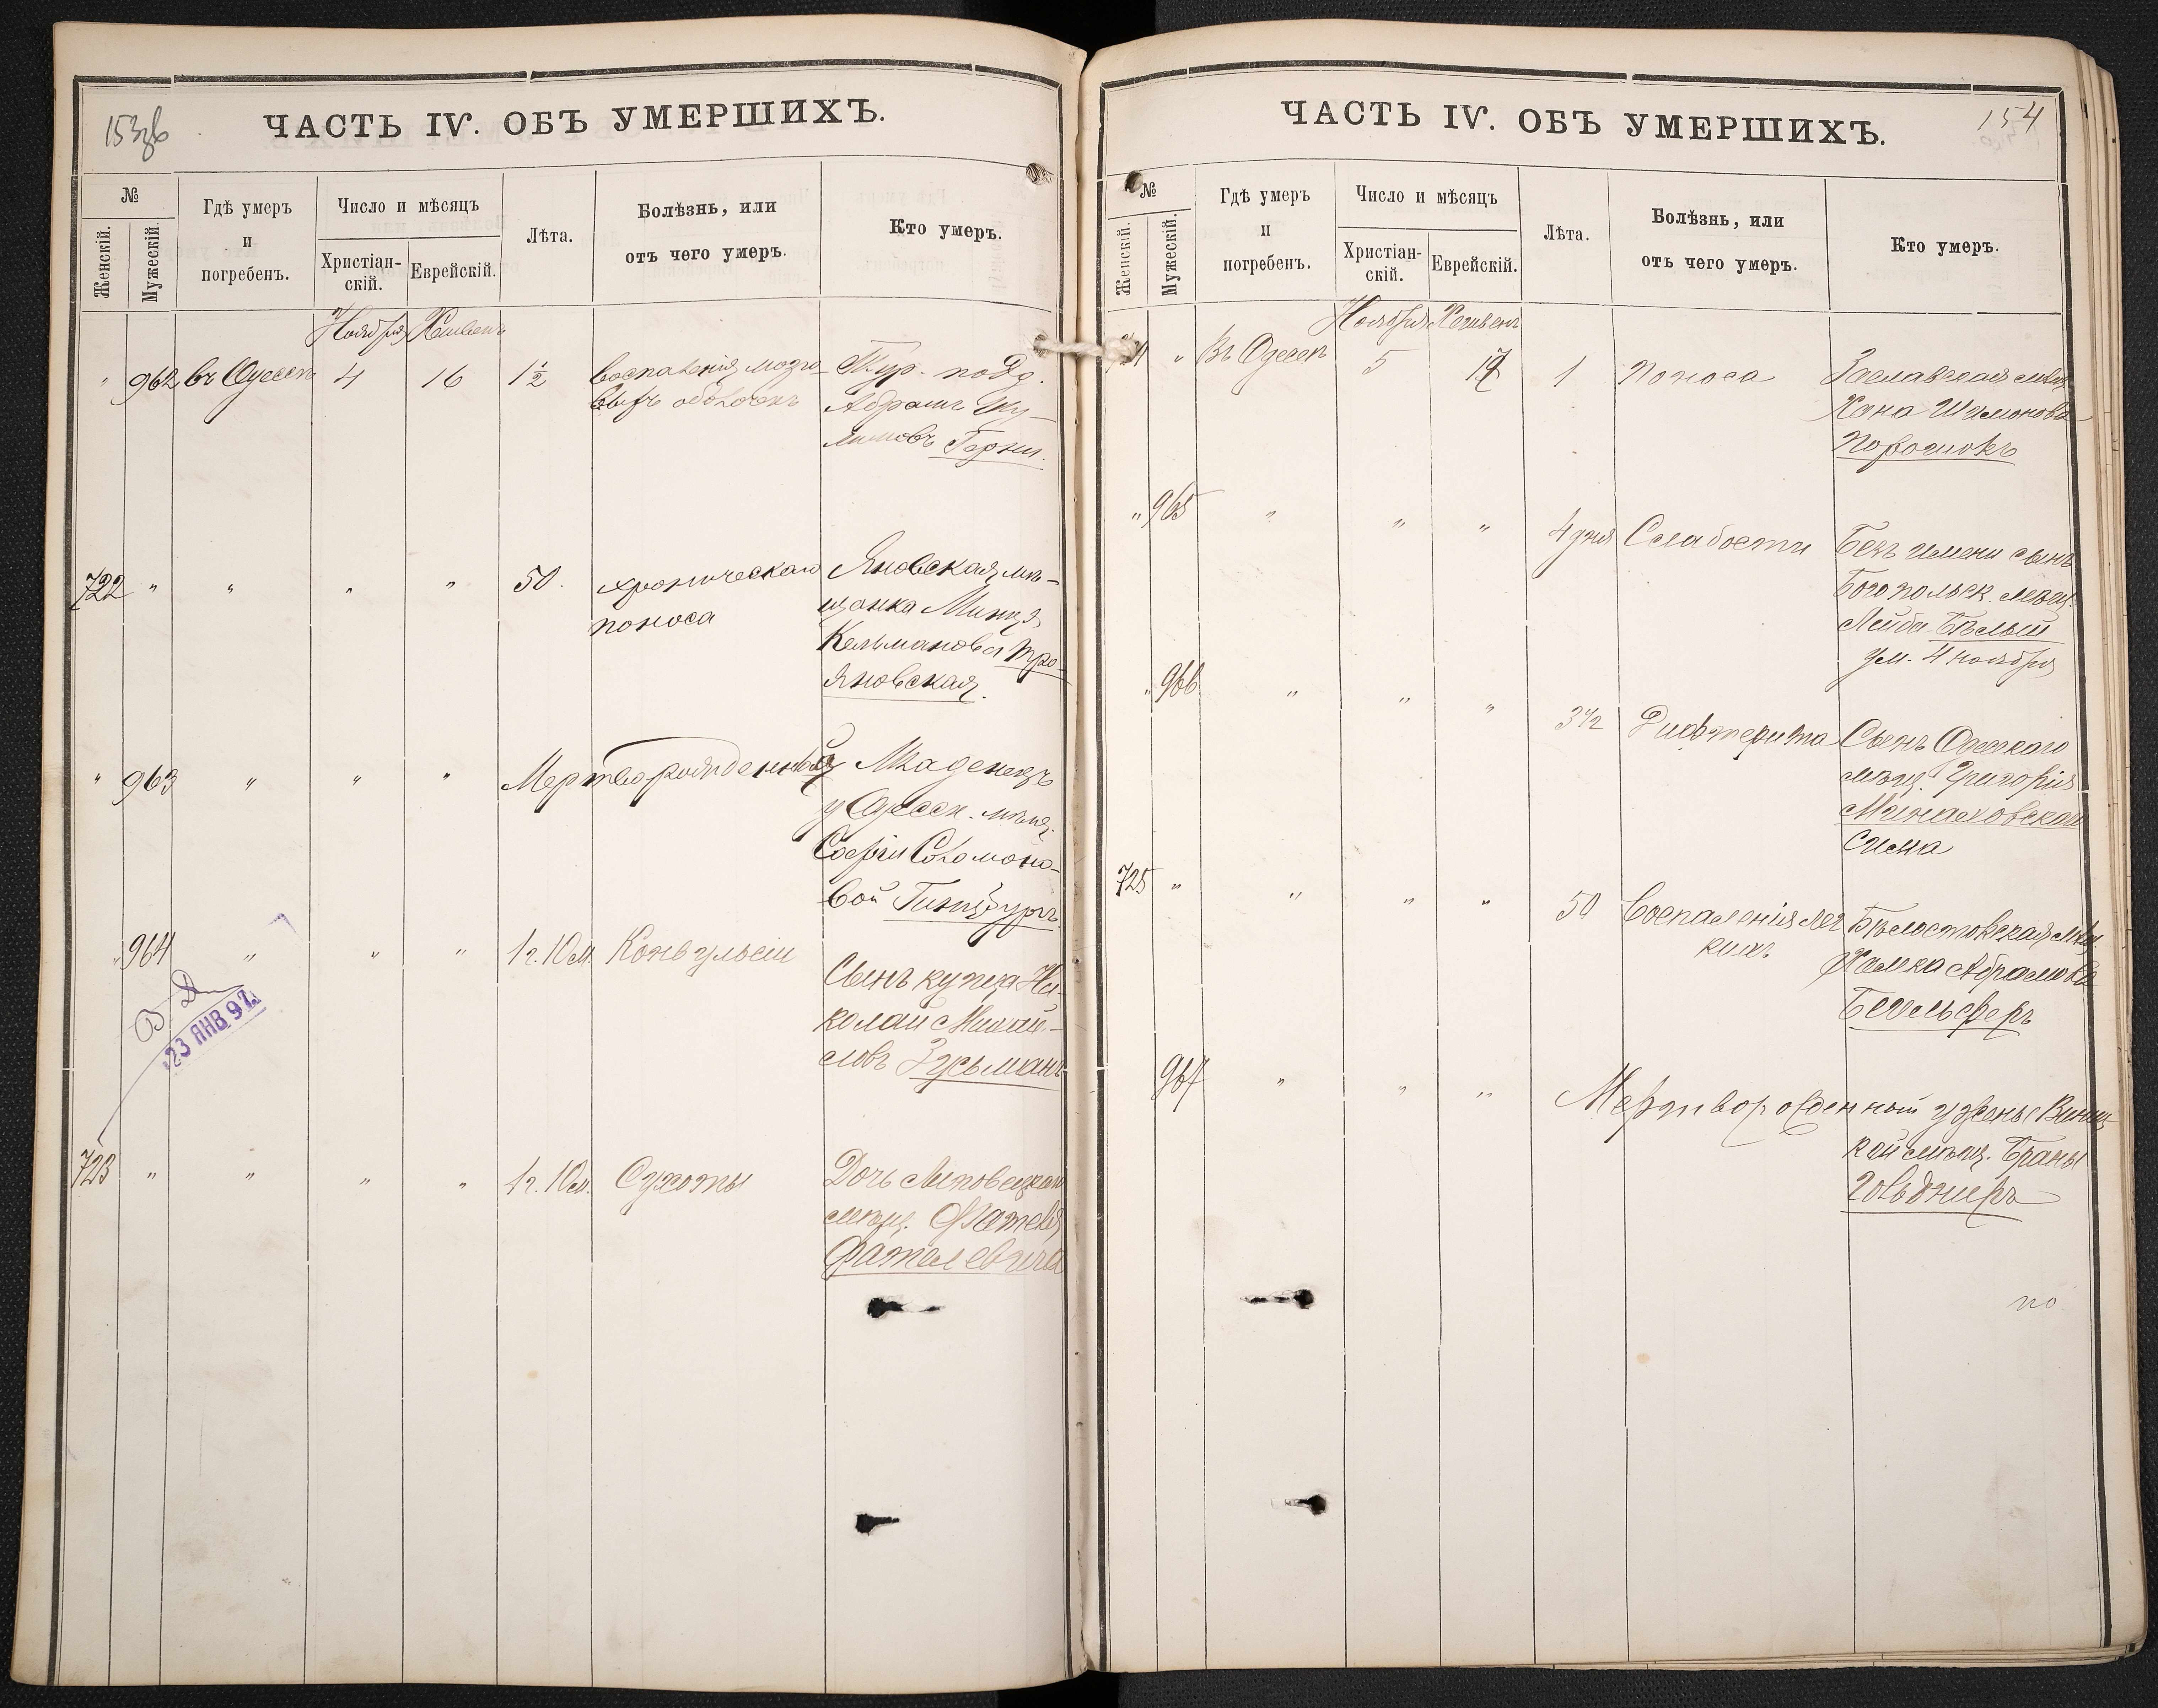 153об
ЧАСТЬ IV. ОБЪ УМЕРШИХЪ.
№
Женскій.
Мужескій.
Гдѣ умеръ
и
погребенъ.
Число и мѣсяцъ
Христіан-
скій.
Еврейскій.
Лѣта.
Болѣзнь, или
отъ чего умеръ.
Кто умеръ.
Ноября Хешвенъ
" 962 въ Одессѣ 4 16 1½ воспаленія мозго- Тур. подд.
выхъ оболочекъ Абрамъ Шу-
лимовъ
722 " " " " 50. хроническаго Яновская мѣ-
поноса щанка Минця
Кельманова Тро-
яновская.
" 963 " " " Мертворожденный Младенецъ
у Одесск. мѣщ.
Софіи Соломоно-
вой Гинцбургъ
" 964 " " " 1 г. 10 м. Конвульсіи
Сынъ купца Ни-
колай Михай-
ловъ Зусьманъ
23 ЯНВ 92
723 " " " " 1 г. 10 м. Сухоты Дочь Литовецкаго
мѣщ.
Фателевича
154
ЧАСТЬ IV. ОБЪ УМЕРШИХЪ.
№
Женскій.
Мужескій.
Гдѣ умеръ
и
погребенъ.
Число и мѣсяцъ
Христіан-
скій.
Еврейскій.
Лѣта.
Болѣзнь, или
отъ чего умеръ.
Кто умеръ.
Ноября Хешвенъ
724 " Въ Одессѣ 5 17 1 Поноса Заславская мѣщ.
Хана Шимонова
" 965 " " " 4 дня Слабости Безъ имени сынъ
Богопольск. мѣщ.
Лейба Бѣлый
ум. 4 ноября
" 966 " " " 3½ Дифтерита Сынъ Одесскаго
мѣщ. Григорія
Минаховскаго
Сиома
725 " " " " 50 Воспаленія лег Бѣлостокская мѣщ.
кихъ Хайка Абрамова
967 " " " Мертворожденный у жены Винниц
кой мѣщ. Браны
Гольднеръ
по